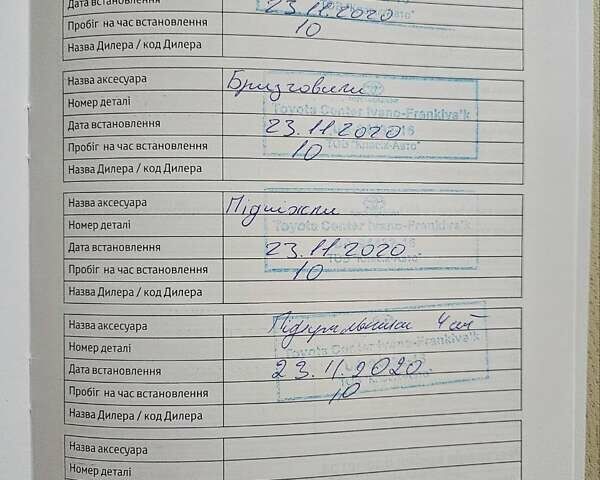 Дата встановлення 23.11.2020
Пробіг на час встановлення 10
Назва Дилера / код Дилера
Назва аксесуара Бризговики
Номер деталі
Toyota Center Ivano-Frankivs'k
Дата встановлення 23.11.2020
Пробіг на час встановлення 10
ТОВ "Класік-Авто"
Назва Дилера / код Дилера
Назва аксесуара Підніжки
Номер деталі
Toyota Center Ivano-Frankivs'k
Дата встановлення 23.11.2020.
Пробіг на час встановлення 10
Назва Дилера / код Дилера
Назва аксесуара Підкрильники 4 шт
Номер деталі
Toyota Center Ivano-Frankivs'k
Дата встановлення 23.11.2020.
Пробіг на час встановлення 10
Назва Дилера / код Дилера
Назва аксесуара
Номер деталі